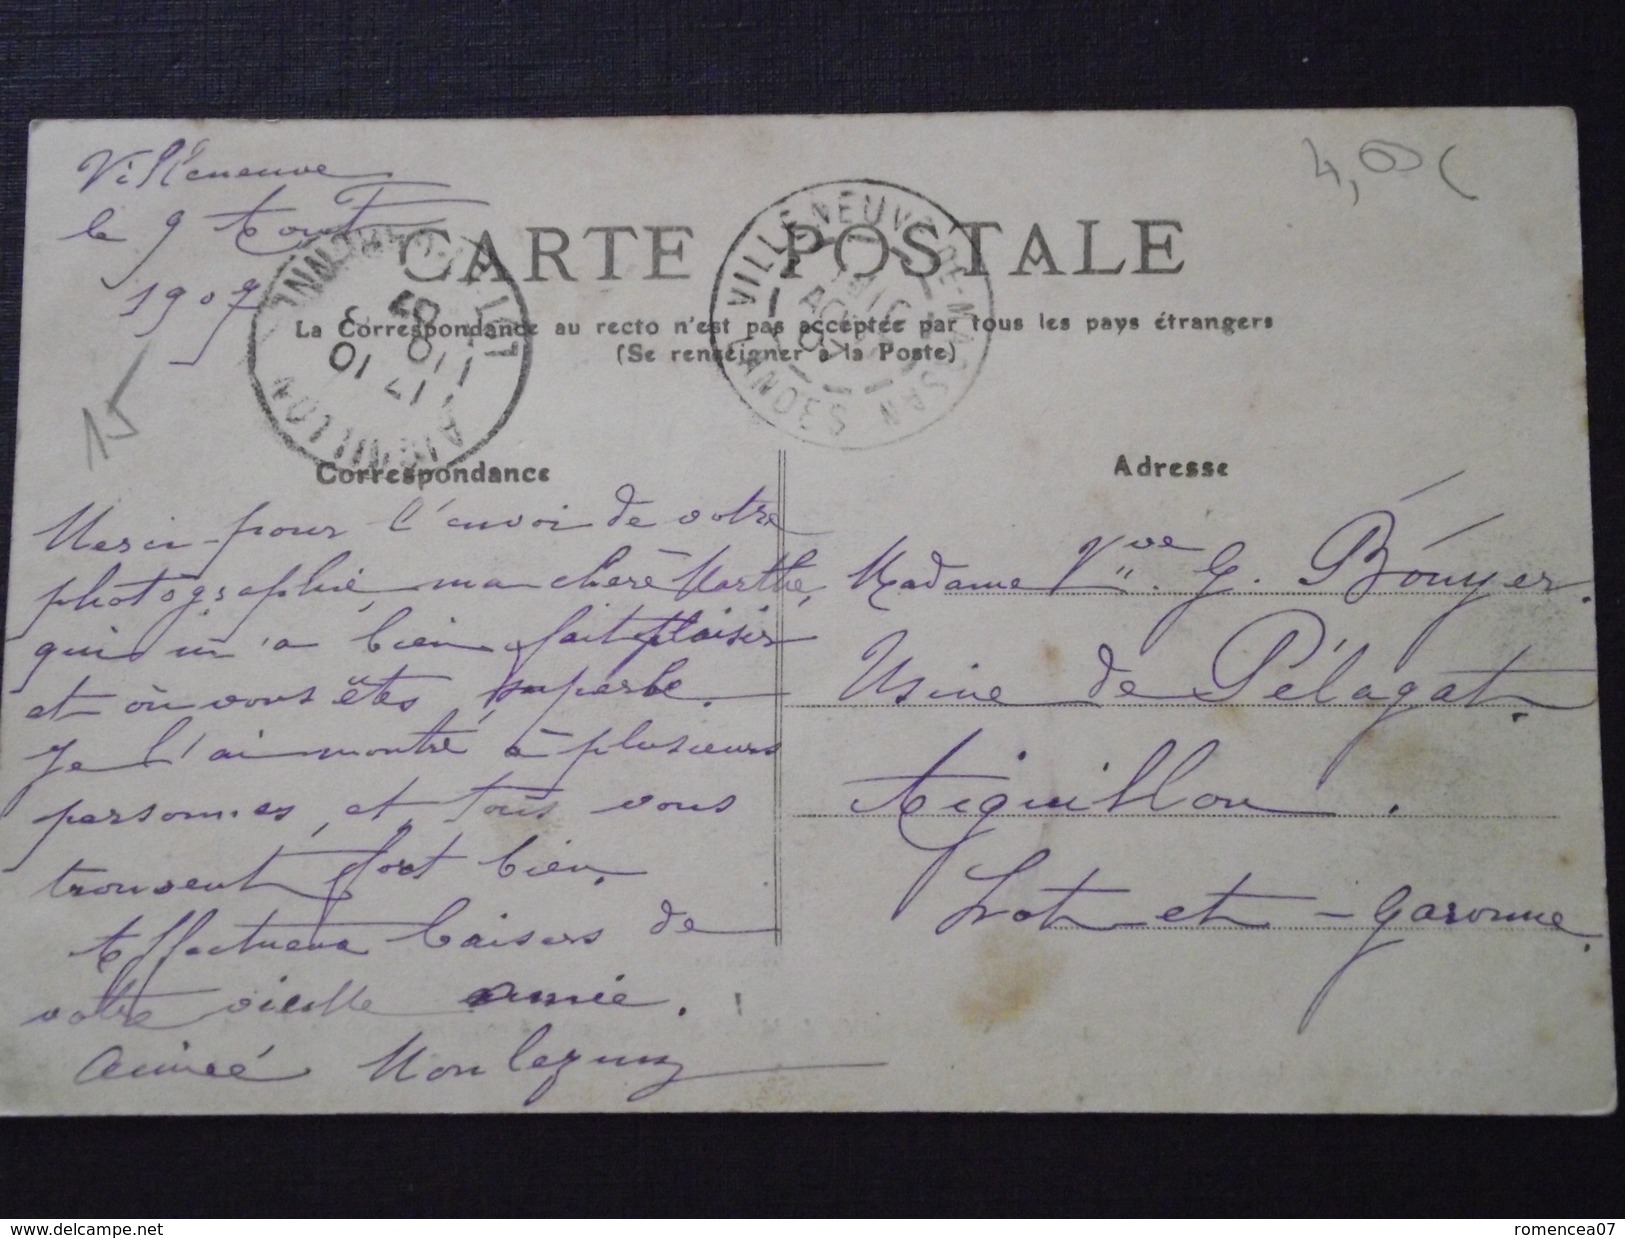 Villeneuve
le 9 Aout
1907
4,00 €
15
CARTE POSTALE
La Correspondance au recto n'est pas acceptée par tous les pays étrangers
(Se renseigner à la Poste)
VILLENEUVE-DE-MARSAN
AIGUILLON
Correspondance
Merci pour l'envoi de votre
photographie, ma chère Marthe,
qui m'a bien fait plaisir
et où vous êtes superbe.
Je l'ai montré à plusieurs
personnes, et tous vous
trouvent fort bien.
Affectueux baisers de
votre vieille amie.
Aimée Monlezun
Adresse
Madame Vve G. Bouyer.
Usine de Pélagat.
Aiguillon.
Lot et-Garonne.
www.delcampe.net
romencea07